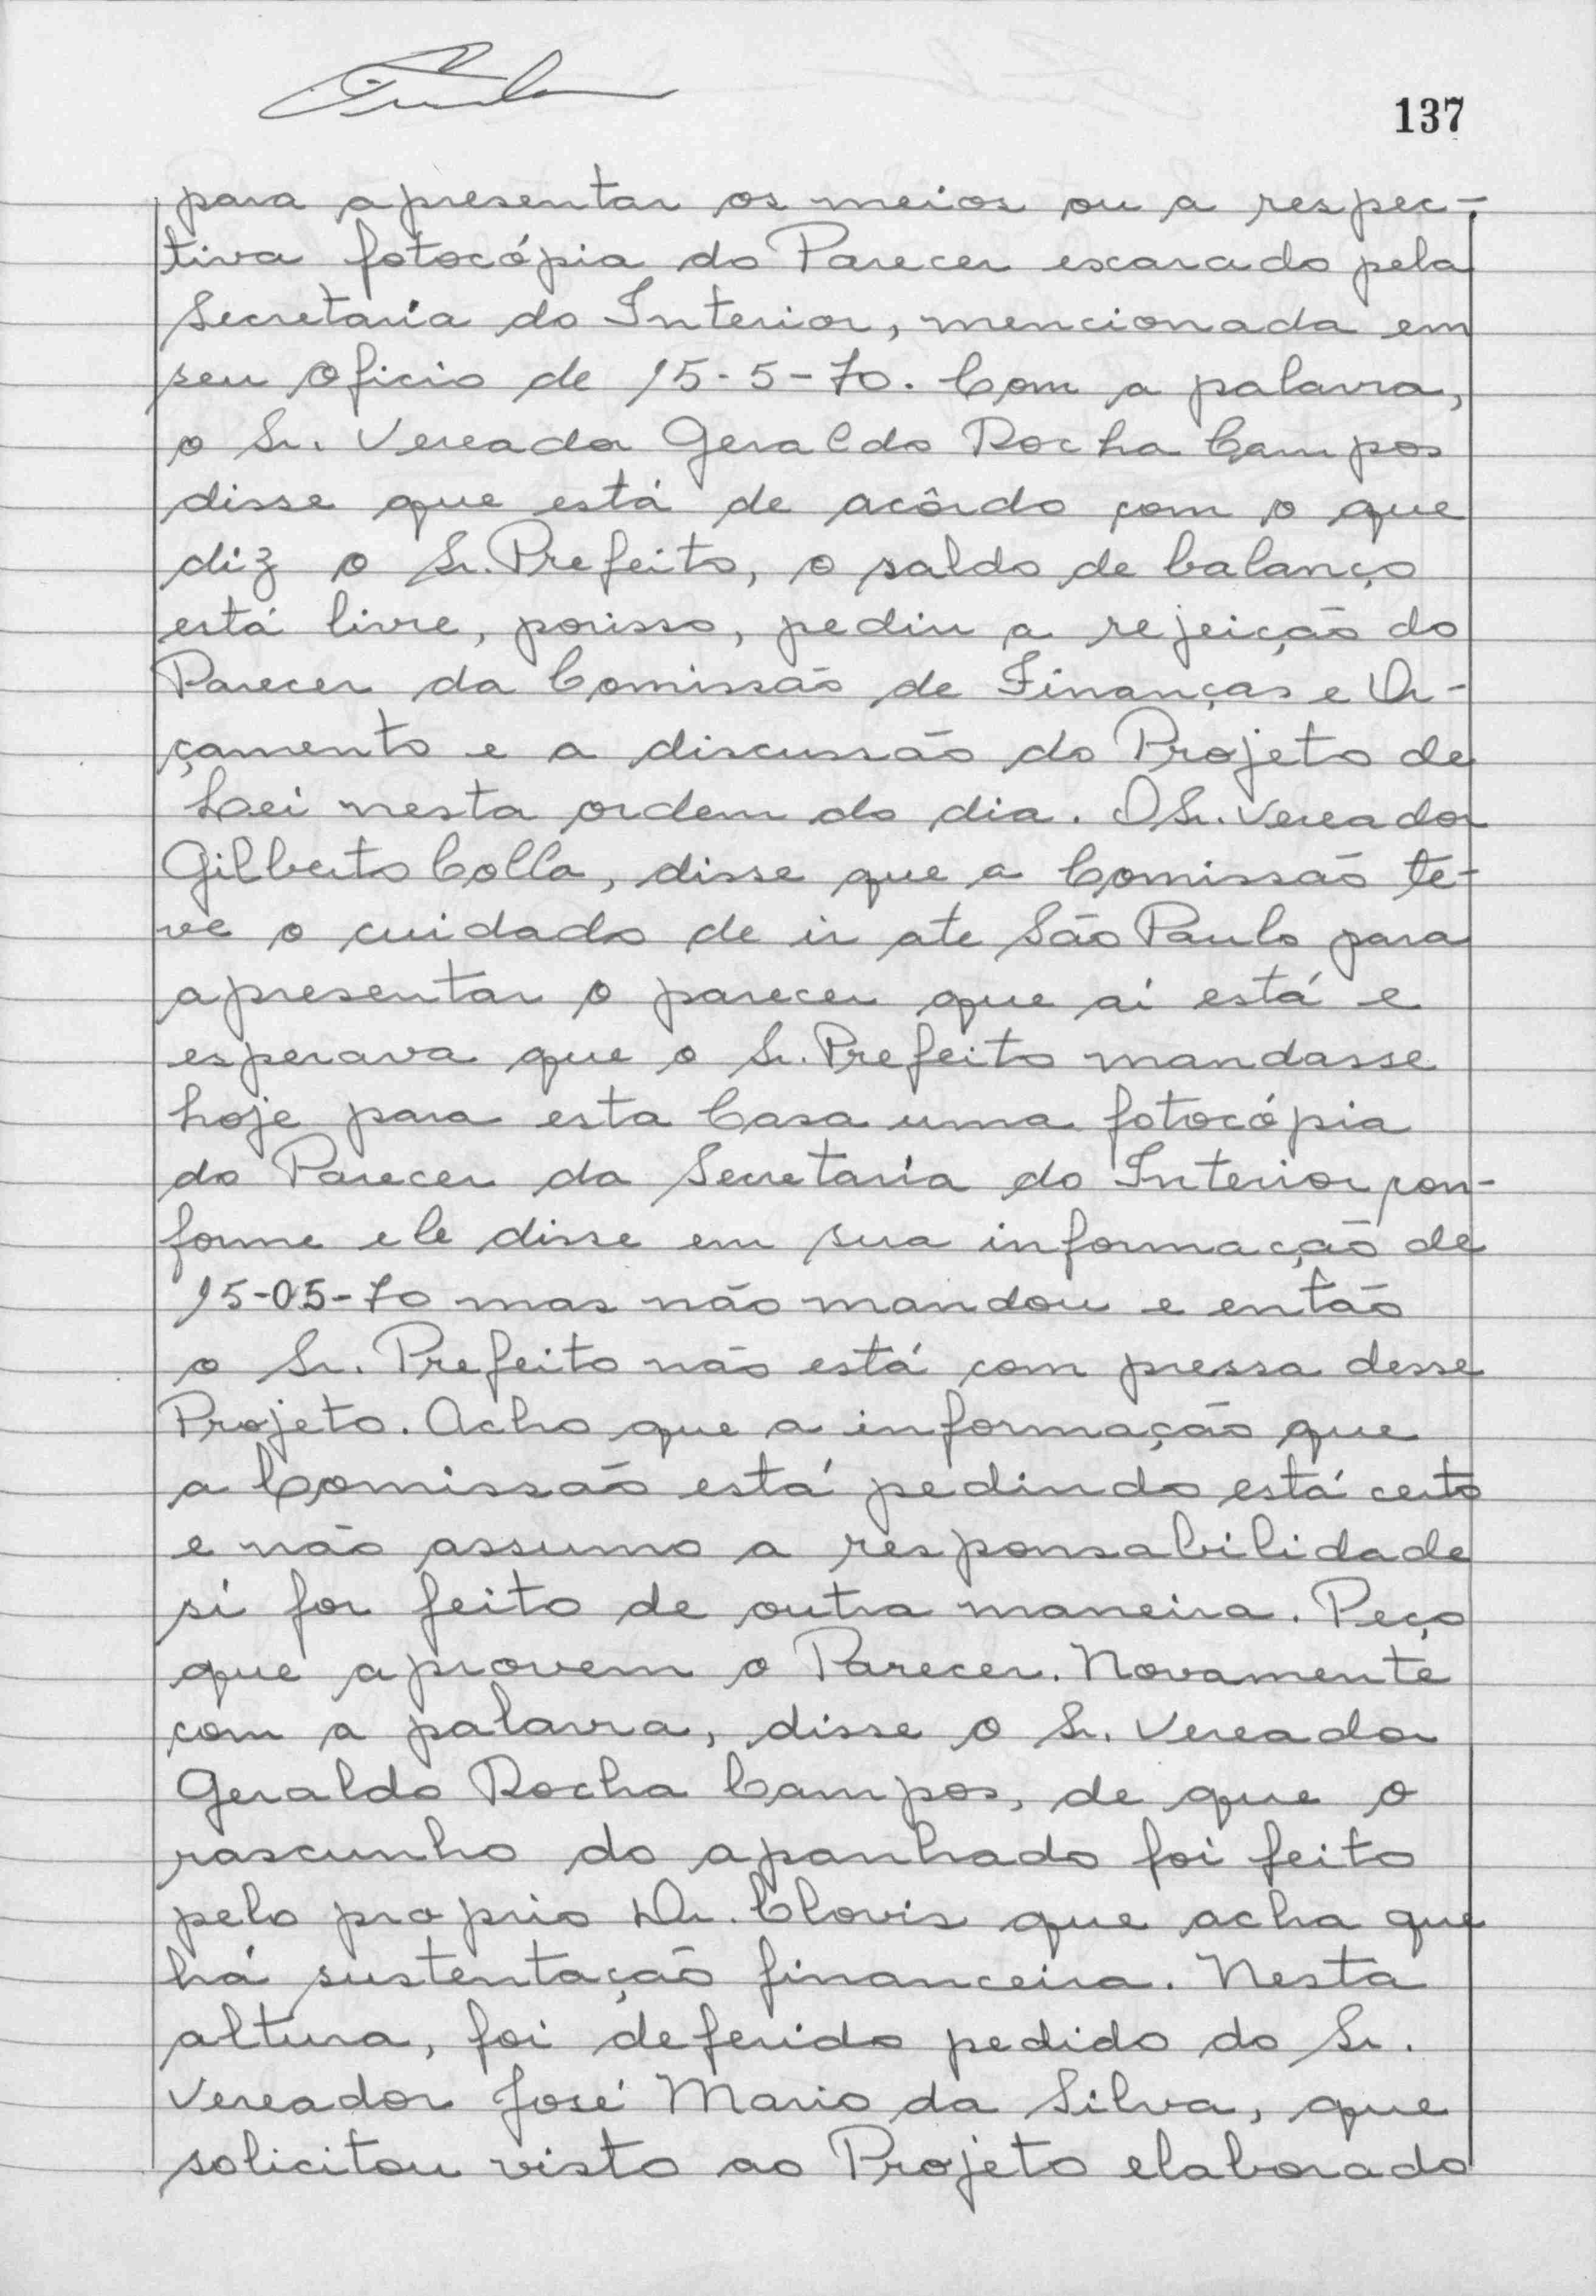 137
para apresentar os meios ou a respec-
tiva fotocópia do Parecer exarado pela
Secretaria do Interior, mencionada em
seu Oficio de 15-5-70. Com a palavra,
o Sr. Vereador Geraldo Rocha Campos
disse que está de acôrdo com o que
diz o Sr. Prefeito, o saldo de balanço
está livre, porisso, pediu a rejeição do
Parecer da Comissão de Finanças e Or-
çamento e a discussão do Projeto de
Lei nesta ordem do dia. O Sr. Vereador
Gilberto Colla, disse que a Comissão te-
ve o cuidado de ir ate São Paulo para
apresentar o parecer que aí está e
esperava que o Sr. Prefeito mandasse
hoje para esta Casa uma fotocópia
do Parecer da Secretaria do Interior con-
forme ele disse em sua informação de
15-05-70 mas não mandou e então
o Sr. Prefeito não está com pressa desse
Projeto. Acho que a informação que
a Comissão está pedindo está certo
e não assumo a responsabilidade
si for feito de outra maneira. Peço
que aprovem o Parecer. Novamente
com a palavra, disse o Sr. Vereador
Geraldo Rocha Campos, de que o
rascunho do apanhado foi feito
pelo proprio Dr. Clovis que acha que
há sustentação financeira. Nesta
altura, foi deferido pedido do Sr.
Vereador José Mario da Silva, que
solicitou visto ao Projeto elaborado